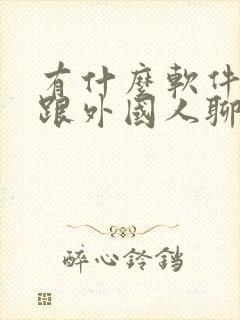 有什麼軟件
跟外國人聊
醉心鈴鐺